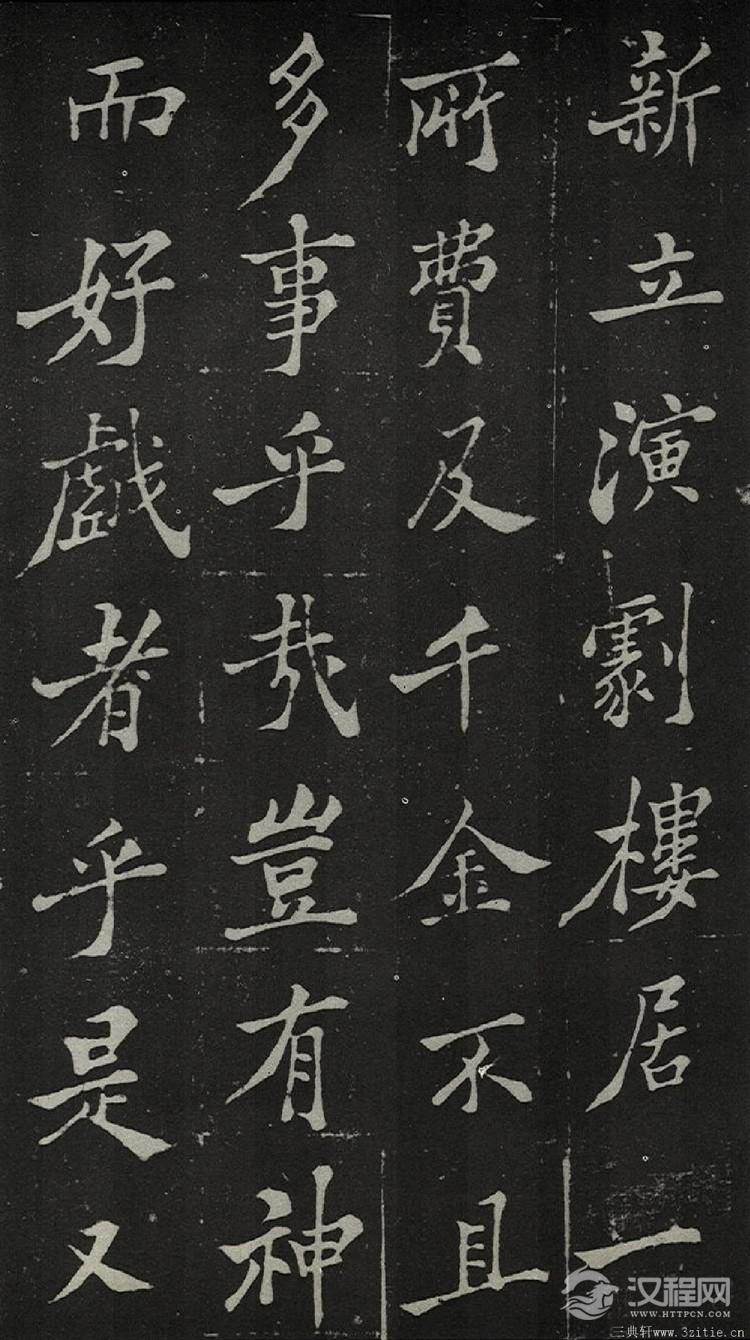 新立演劇樓居一
所費及千金不且
多事乎哉豈有神
而好戲者乎是又
汉程网
WWW.HTTPCN.COM
三典轩www.3zitie.cn